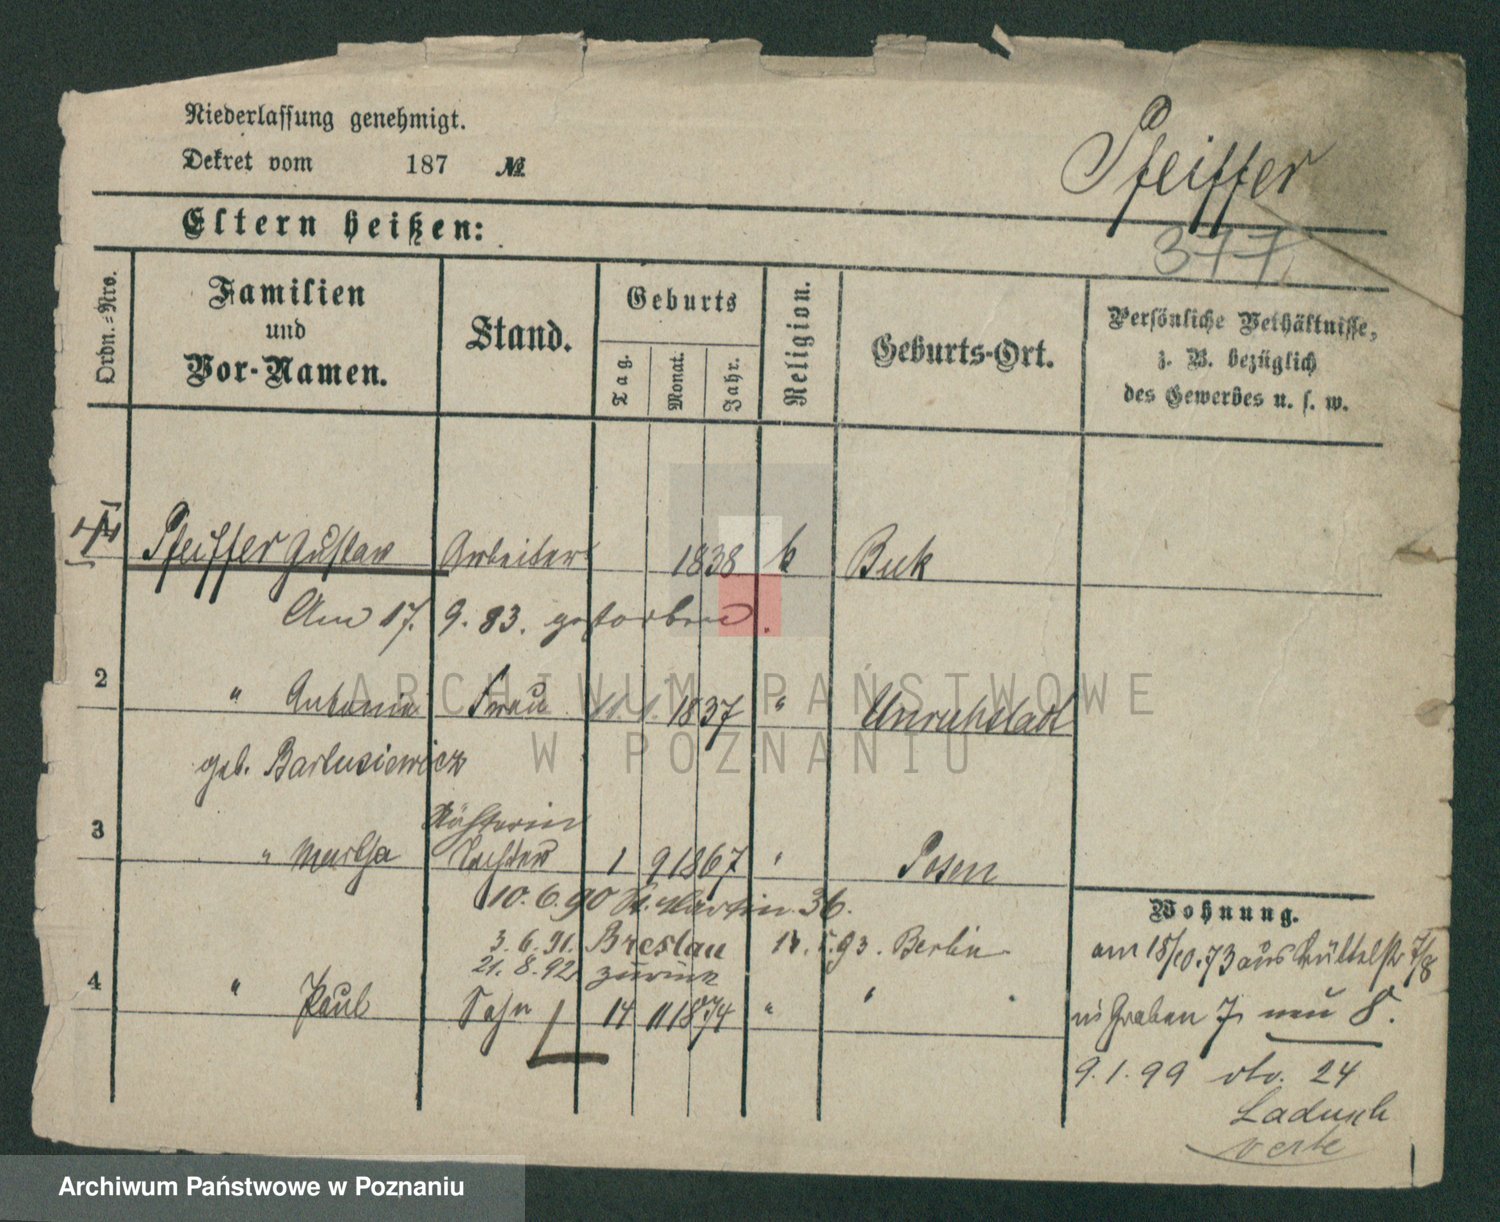 Niederlassung genehmigt.
Dekret vom 187 №
Pfeiffer
377
Eltern heißen:
Ordn.-Nro.
Familien
und
Vor-Namen.
Stand.
Geburts
Tag.
Monat.
Jahr.
Religion.
Geburts-Ort.
Persönliche Verhältnisse,
z. B. bezüglich
des Gewerbes u. s. w.
Pfeiffer Gustav Arbeiter 1838 k Buk
Am 17. 9. 83. gestorben.
2 " Antonie Frau 1837 " Unruhstadt
geb. Bartusiewicz
3 " Martha Tochter 1 9 1867 " Posen
10. 6. 90 St. Martin 36.
3. 6. 91. Breslau 93. Berlin
21. 8. 92 zurück
4 " Paul Sohn 14 11 1874 " "
Wohnung.
am 18/10.73 aus 7/8
in Graben 7 neu 8.
9. 1. 99 24
Ladusch
verte
ARCHIWUM PAŃSTWOWE
W POZNANIU
Archiwum Państwowe w Poznaniu